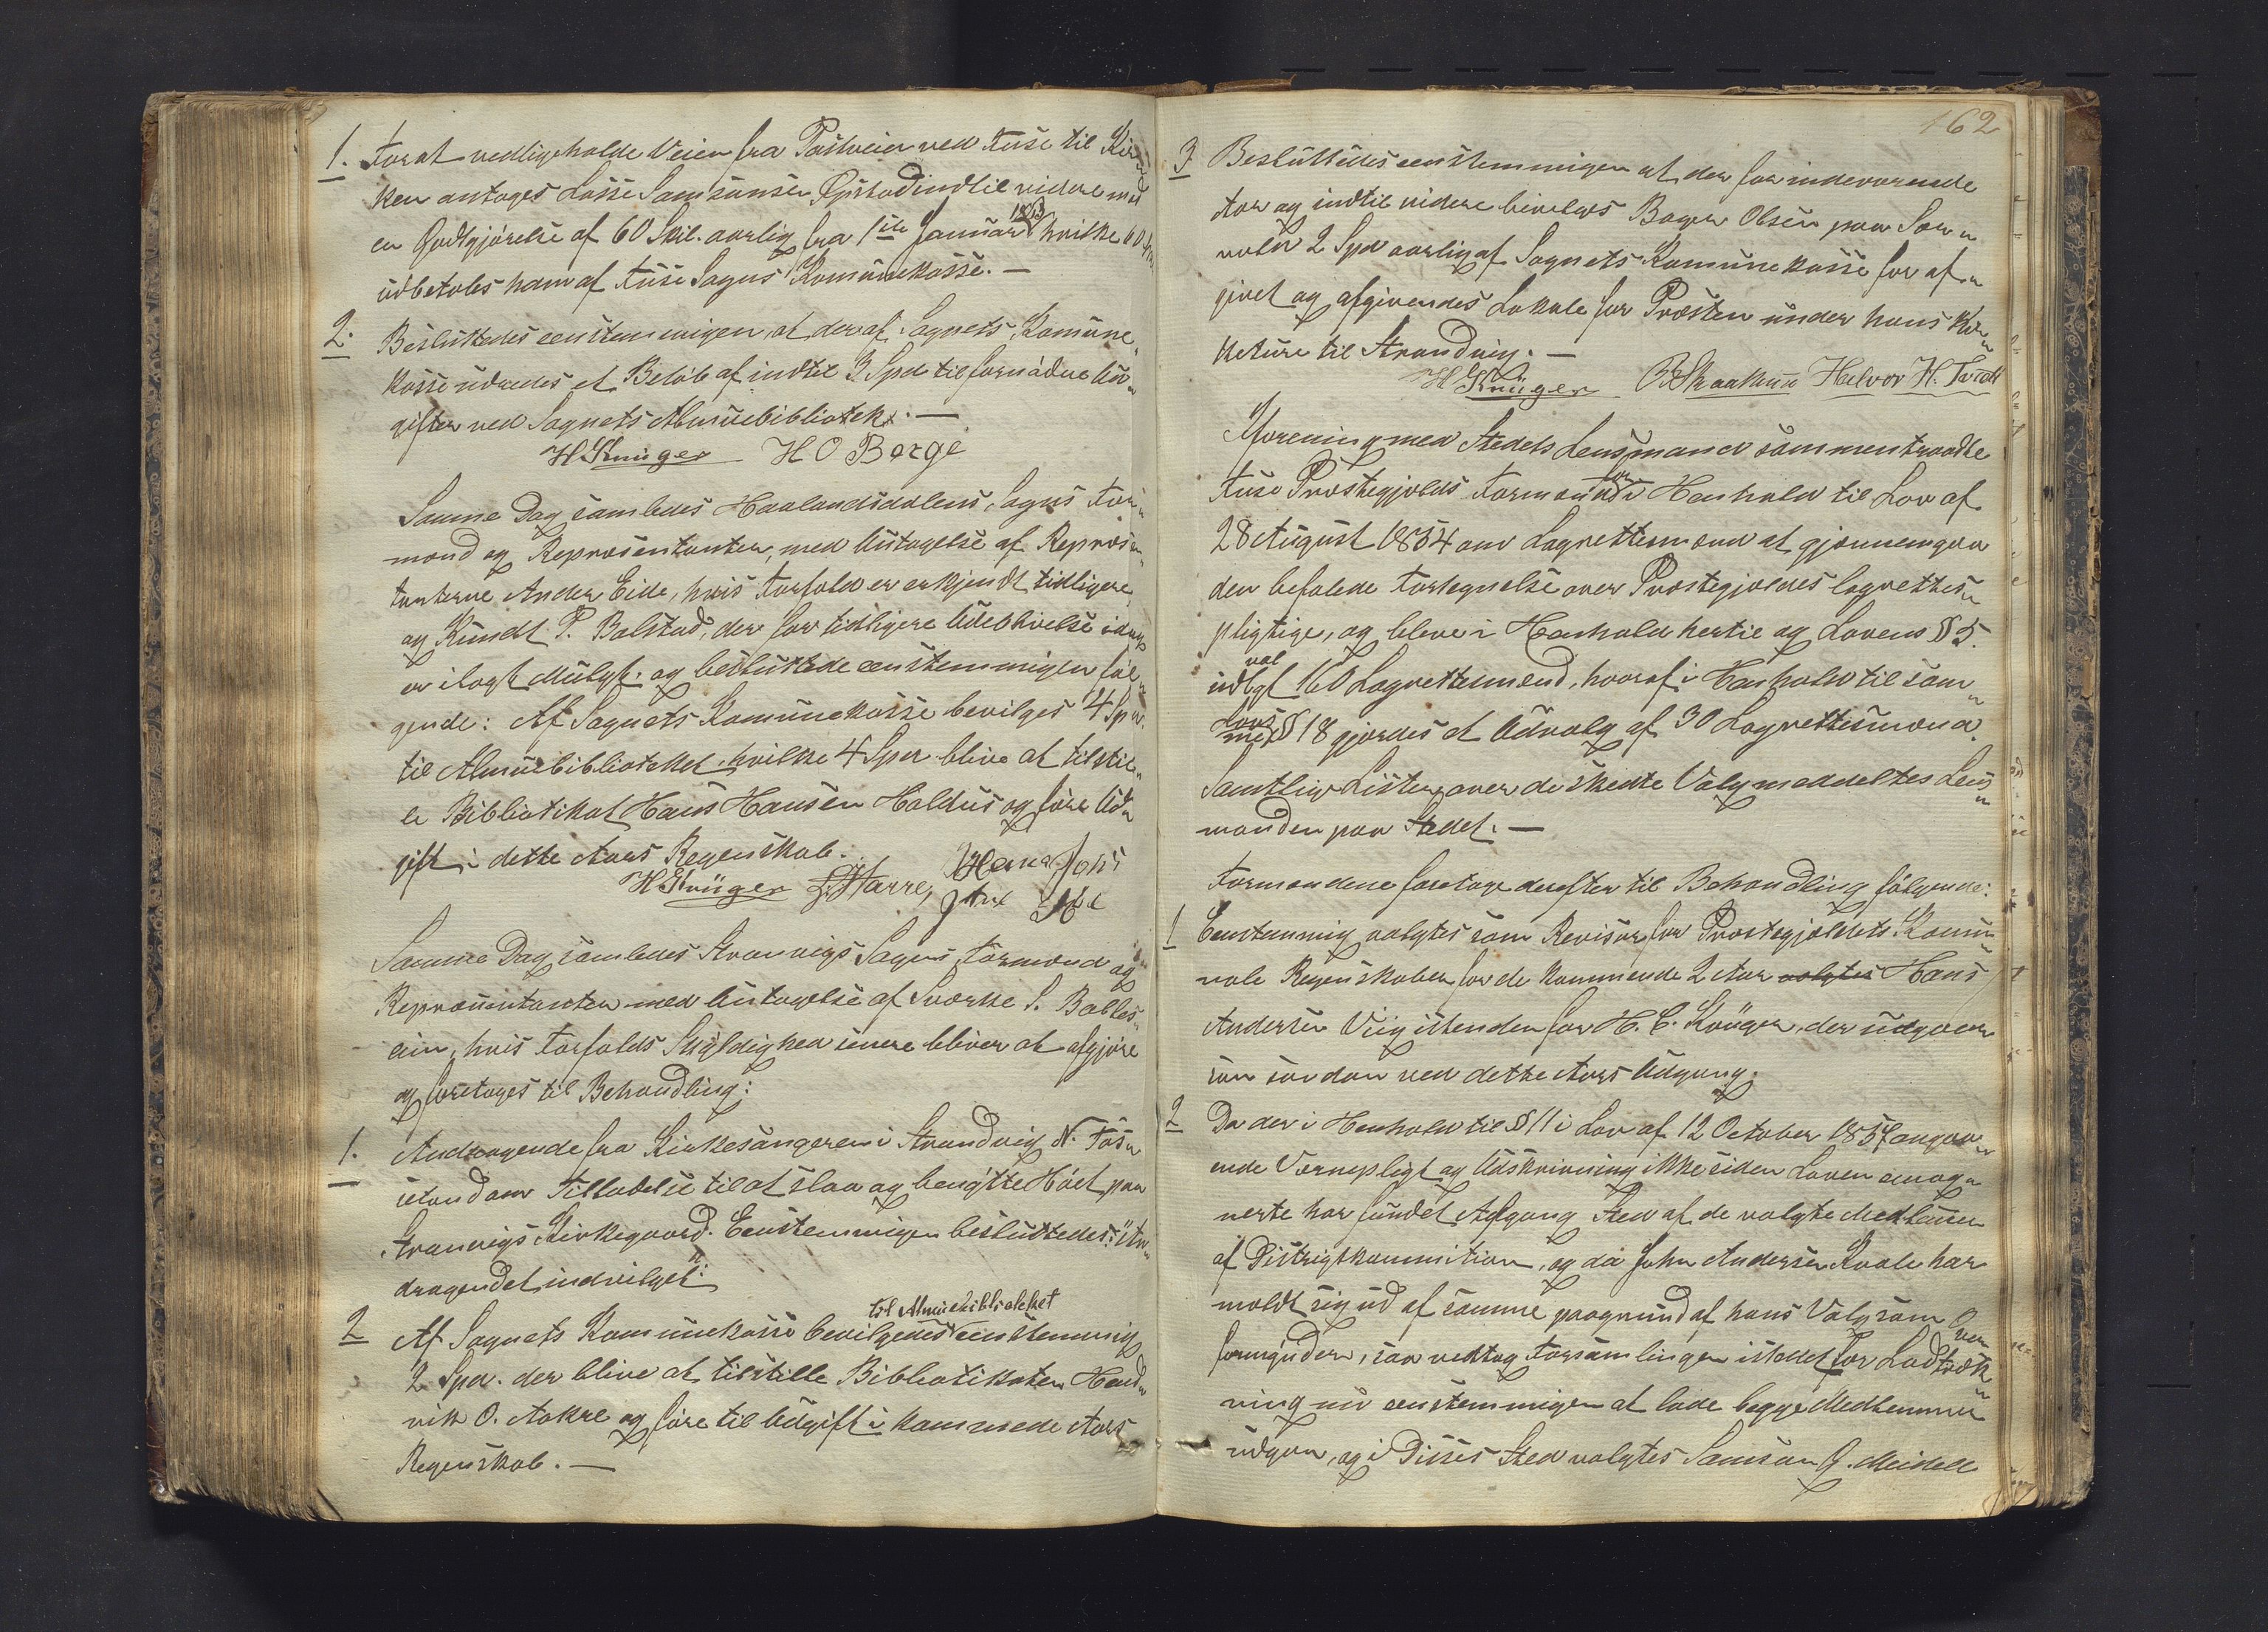 1. Forat vedligeholde Veien fra Postveien ved Fuse til Kir-
ken antages Lasse Samsonsen Opstad indtil videre med
en Godtgjörelse af 60 Skil. aarlig fra 1ste Januar hvilke 60
udbetales ham af Fuse Sogns Komunekasse. —
2. Besluttedes eenstemmigen, at der af Sognets Komune-
kasse udredes et Beløb af indtil 3 Spd til fornødne Ud-
gifter ved Sognets Almuebibliotek. —
H Krüger H O Berge
Samme Dag samledes Haalandsdalens Sogns For-
mænd og Repræsentanter, med Undtagelse af Repræsen-
tanterne Anders Eide, hvis Forfald er erkjendt tidligere,
og Knudt P. Bolstad, der for tidligere Udeblivelse idag
er ilagt Mulgt. og besluttede eenstemmigen föl-
gende: Af Sognets Komunekasse bevilges 4 Spd
til Almuebiblioteket, hvilke 4 Spd. blive at tilstil-
le Bibliotikar Hans Hansen Holdus og före Ud-
gift i dette Aars Regnskab.
H Krüger
Samme Dag samledes Strandvigs Sogns Formænd og
Repræsentanter med Undtagelse af Sværke S. Balles-
eim, hvis Forfalds Gyldighed senere bliver at afgjöre
og foretoges til Behandling:
1. Andragende fra Kirkesangeren i Strandvig N. Fos-
sum Tilladelse til at slaa og benytte Höet paa
Strandvigs Kirkegaard. Eenstemmigen besluttedes: "An-
dragendet indvilget."
til Almuebiblioteket
2 Af Sognets Komunekasse bevilgedes eenstemmig
2 Spd. der blive at tilstille Bibliotikaren Hend-
rik O. Aakre og före til Udgift i kommende Aars
Regnskab. —
162
3 Besluttedes eenstemmigen at der for indeværende
Aar og indtil videre bevilges Bager Olsen paa Sør-
vold 2 Spd aarlig af Sognets Komunekasse for af-
givet og afgivendes Lokale for Præsten under hans Kor-
reture til Strandvig. —
H Krüger B Skaathun Halvor H. Tvedt
I forening med Stedets Lensmand sammentraadte
Fuse Præstegjelds Formænd for i Henhold til Lov af
28 August 1854 om Lagrettemænd at gjennemgaa
den befalede Fortegnelse over Præstegjeldets lagrettes-
pligtige, og bleve i Henhold hertil og Lovens § 5.
udvalgt 160 Lagrettemænd, hvoraf i Henhold til sam-
me Lovs § 18 gjordes et Udvalg af 30 Lagrettesmænd.
Samtlige Lister over de skedte Valg meddeltes Lens-
manden paa Stedet. —
Formændene foretoge derefter til Behandling fölgende:
1 Eenstemmig valgtes som Revisor for Præstegjeldets Komu-
nale Regnskaber for de kommende 2 Aar valgtes Hans
Andersen Viig istenden for H. C. Krüger, der udgaaer
som saadan ved dette Aars Udgang.
2 Da der i Henhold til § 11 i Lov af 12 October 1857 angaa-
ende Værnepligt og Udskrivning ikke siden Loven emag-
nerte har fundet Afgang Sted af de valgte Medlemmer
af Distrigtskommission, og da John Andersen Kvale har
meldt sig ud af samme paagrund af hans Valg som Over-
formynder, saa vedtog Forsamlingen istedet for Lodtræk-
ning nu eenstemmigen at lade begge Medlemmer
udgaa, og i Disses Sted valgtes Samson J. Meidell